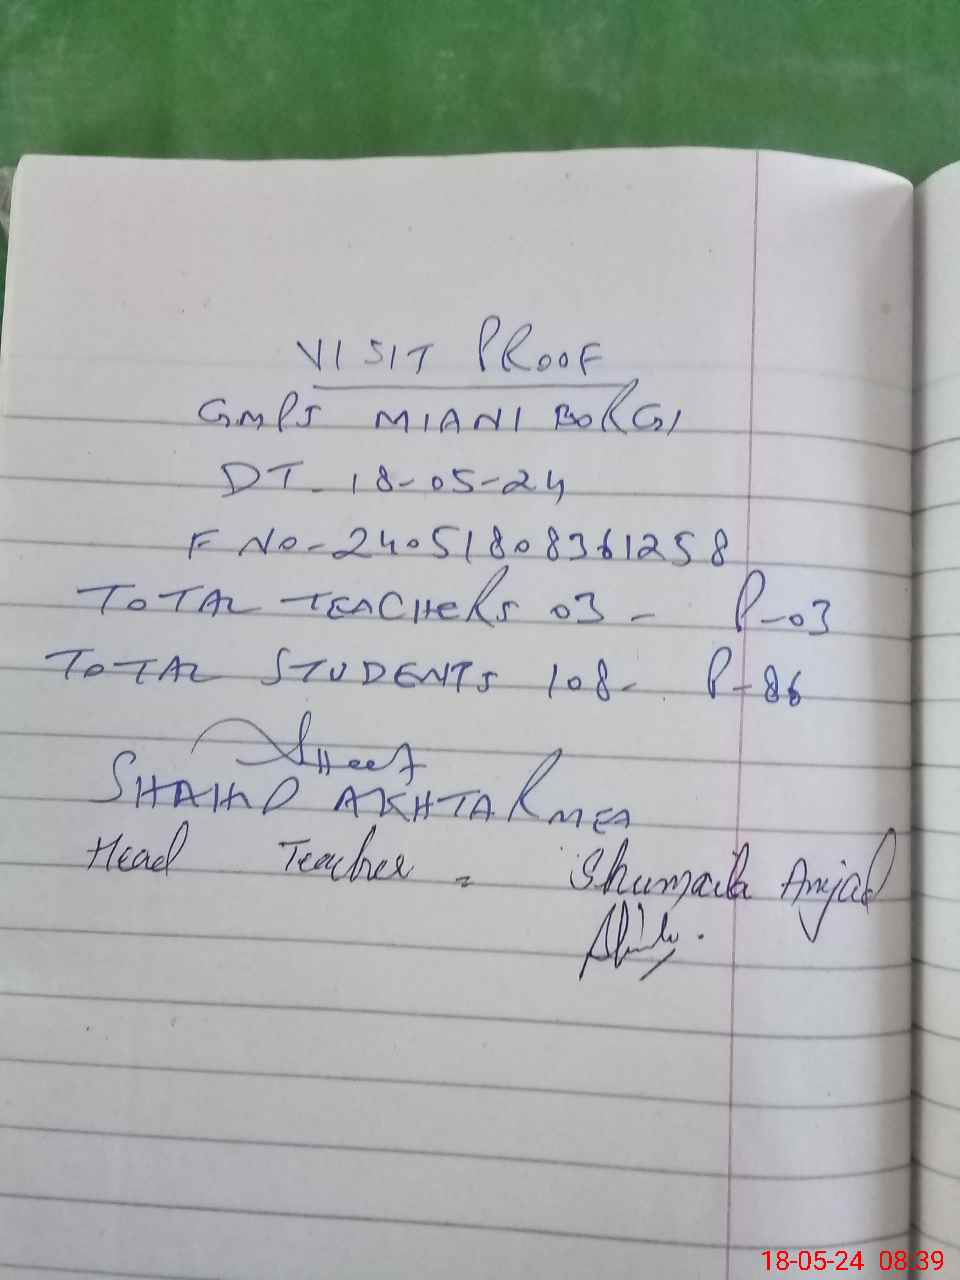 VISIT PROOF
GMPS MIANI BORGI
DT. 18-05-24
F NO-24051808361258
TOTAL TEACHERS 03 - P-03
TOTAL STUDENTS 108- P-86
SHAHID AKHTAR MEA
Head Teacher = Shumaila Amjad
18-05-24 08:39